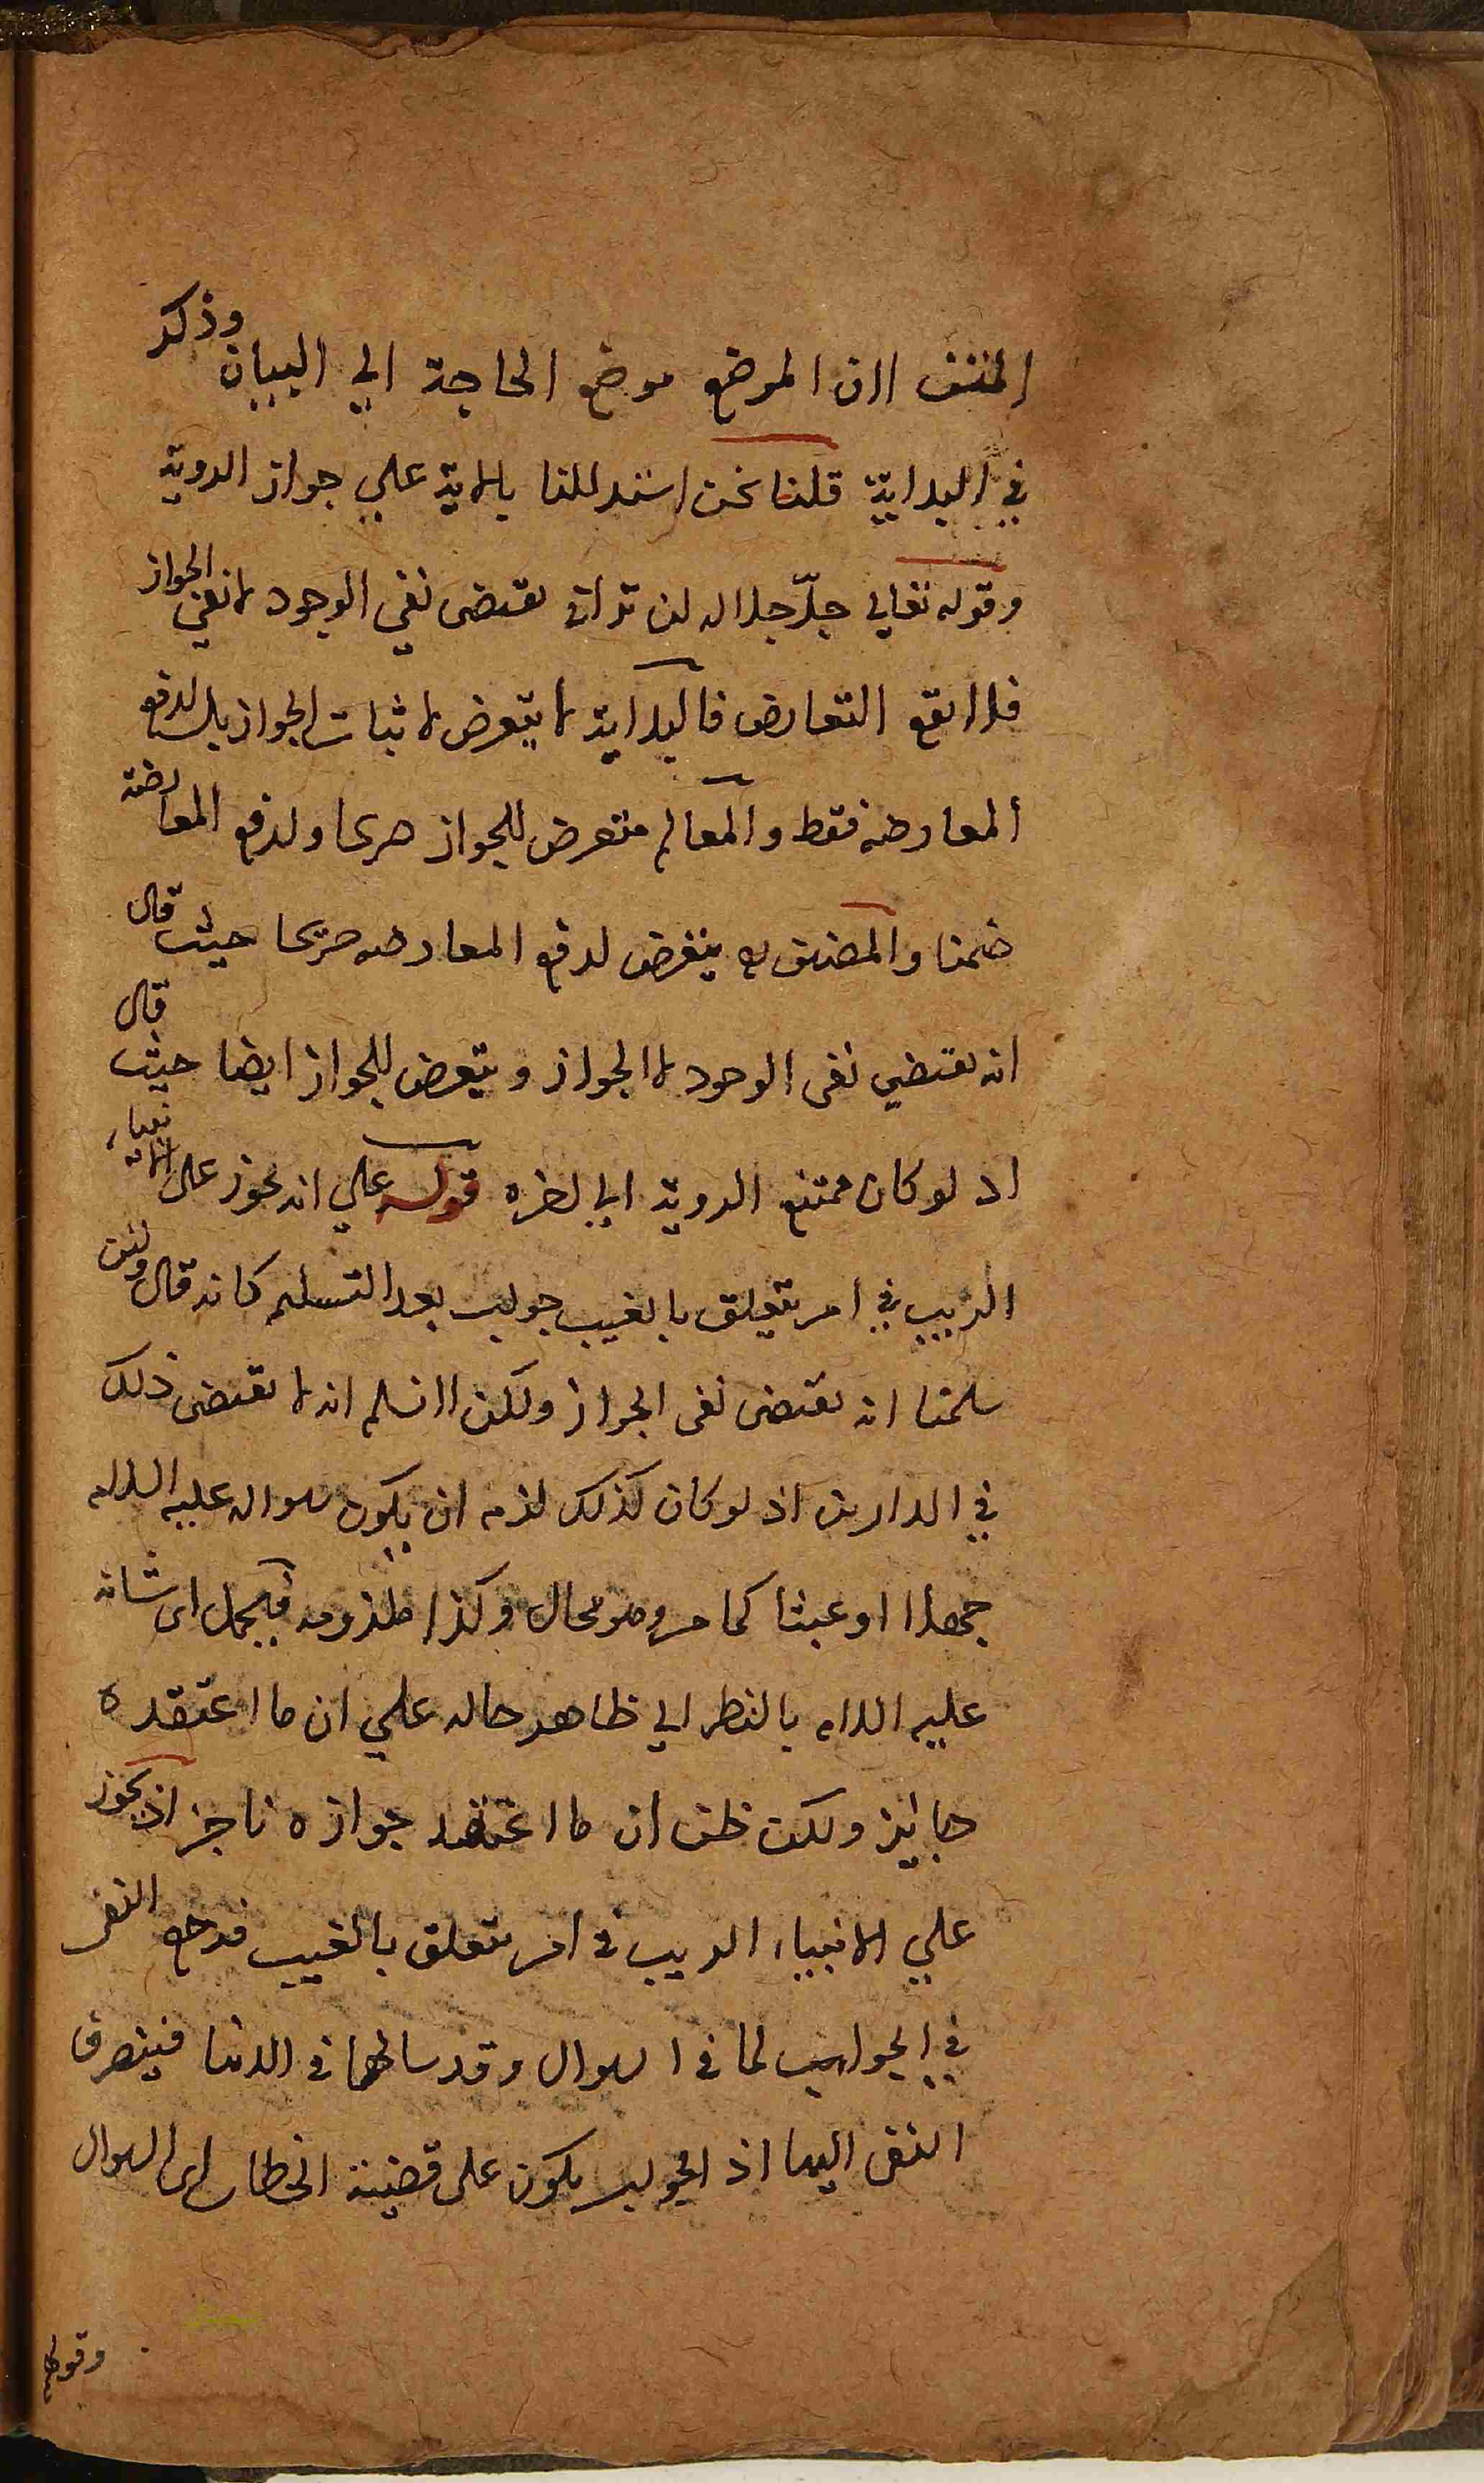 المتن لان الموضع موضع الحاجة الي البيان وذكر
في البداية قلنا نحن استدللنا بالاية علي جواز الروية
وقوله تعالي جلّ جلاله لن تراني يقتضى نفي الوجود لا نفي الجواز
فلا يقع التعارض فالبداية لا يتعرض لاثبات الجواز بل لدفع
المعارضه فقط والمعالم متعرض للجواز صريحا ولدفع المعارضة
ضمنا والمصنف يتعرض لدفع المعارضه صريحا حيث قال
انه يقتضي نفى الوجود لا الجواز ويتعرض للجواز ايضا حيث قال
اذ لو كان ممتنع الروية الي اخره قوله علي انه يجوز على الانبياء
الريب في امر يتعلق بالغيب جواب بعد التسليم كانه قال ولئن
سلمنا انه يقتضى نفى الجواز ولكن لا نسلم انه لا يقتضى ذلك
في الدارين اذ لو كان كذلك لزم ان يكون سواله عليه السلام
جهلا او عبثا كما مر وهو محال وكذا ملزومه فيحمل اى شانه
عليه السلام بالنظر الي ظاهر حاله علي ان ما اعتقده
جايز ولكن ظن ان ما اعتقد جوازه ناجز اذ يجوز
علي الانبياء الريب في امر يتعلق بالغيب فرجع النفى
في الجواب لما في السوال وقد سالها في الدنيا فينصرف
النفى اليها اذ الجواب يكون على قضية الخطاب اى السوال
وقولهم